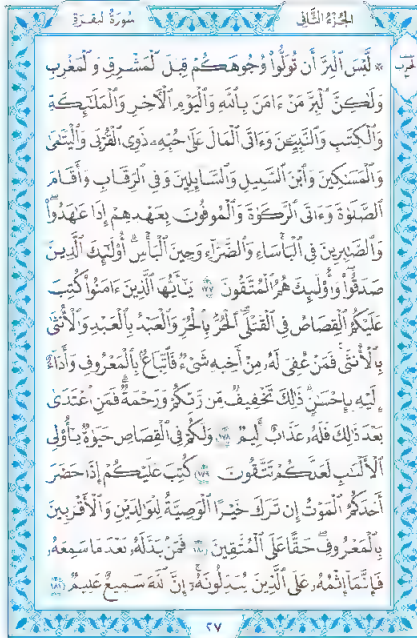 الجزء الثاني
سورة البقرة
لَّيْسَ ٱلْبِرَّ أَن تُوَلُّوا۟ وُجُوهَكُمْ قِبَلَ ٱلْمَشْرِقِ وَٱلْمَغْرِبِ
وَلَٰكِنَّ ٱلْبِرَّ مَنْ ءَامَنَ بِٱللَّهِ وَٱلْيَوْمِ ٱلْءَاخِرِ وَٱلْمَلَٰٓئِكَةِ
وَٱلْكِتَٰبِ وَٱلنَّبِيِّۦنَ وَءَاتَى ٱلْمَالَ عَلَىٰ حُبِّهِۦ ذَوِى ٱلْقُرْبَىٰ وَٱلْيَتَٰمَىٰ
وَٱلْمَسَٰكِينَ وَٱبْنَ ٱلسَّبِيلِ وَٱلسَّآئِلِينَ وَفِى ٱلرِّقَابِ وَأَقَامَ
ٱلصَّلَوٰةَ وَءَاتَى ٱلزَّكَوٰةَ وَٱلْمُوفُونَ بِعَهْدِهِمْ إِذَا عَٰهَدُوا۟ۖ
وَٱلصَّٰبِرِينَ فِى ٱلْبَأْسَآءِ وَٱلضَّرَّآءِ وَحِينَ ٱلْبَأْسِۗ أُو۟لَٰٓئِكَ ٱلَّذِينَ
صَدَقُوا۟ۖ وَأُو۟لَٰٓئِكَ هُمُ ٱلْمُتَّقُونَ ١٧٧ يَٰٓأَيُّهَا ٱلَّذِينَ ءَامَنُوا۟ كُتِبَ
عَلَيْكُمُ ٱلْقِصَاصُ فِى ٱلْقَتْلَىۖ ٱلْحُرُّ بِٱلْحُرِّ وَٱلْعَبْدُ بِٱلْعَبْدِ وَٱلْأُنثَىٰ
بِٱلْأُنثَىٰۚ فَمَنْ عُفِىَ لَهُۥ مِنْ أَخِيهِ شَىْءٌ فَٱتِّبَاعٌۢ بِٱلْمَعْرُوفِ وَأَدَآءٌ
إِلَيْهِ بِإِحْسَٰنٍۗ ذَٰلِكَ تَخْفِيفٌ مِّن رَّبِّكُمْ وَرَحْمَةٌۗ فَمَنِ ٱعْتَدَىٰ
بَعْدَ ذَٰلِكَ فَلَهُۥ عَذَابٌ أَلِيمٌ ١٧٨ وَلَكُمْ فِى ٱلْقِصَاصِ حَيَوٰةٌ يَٰٓأُو۟لِى
ٱلْأَلْبَٰبِ لَعَلَّكُمْ تَتَّقُونَ ١٧٩ كُتِبَ عَلَيْكُمْ إِذَا حَضَرَ
أَحَدَكُمُ ٱلْمَوْتُ إِن تَرَكَ خَيْرًا ٱلْوَصِيَّةُ لِلْوَٰلِدَيْنِ وَٱلْأَقْرَبِينَ
بِٱلْمَعْرُوفِۖ حَقًّا عَلَى ٱلْمُتَّقِينَ ١٨٠ فَمَنۢ بَدَّلَهُۥ بَعْدَ مَا سَمِعَهُۥ
فَإِنَّمَآ إِثْمُهُۥ عَلَى ٱلَّذِينَ يُبَدِّلُونَهُۥٓۚ إِنَّ ٱللَّهَ سَمِيعٌ عَلِيمٌ ١٨١
٢٧